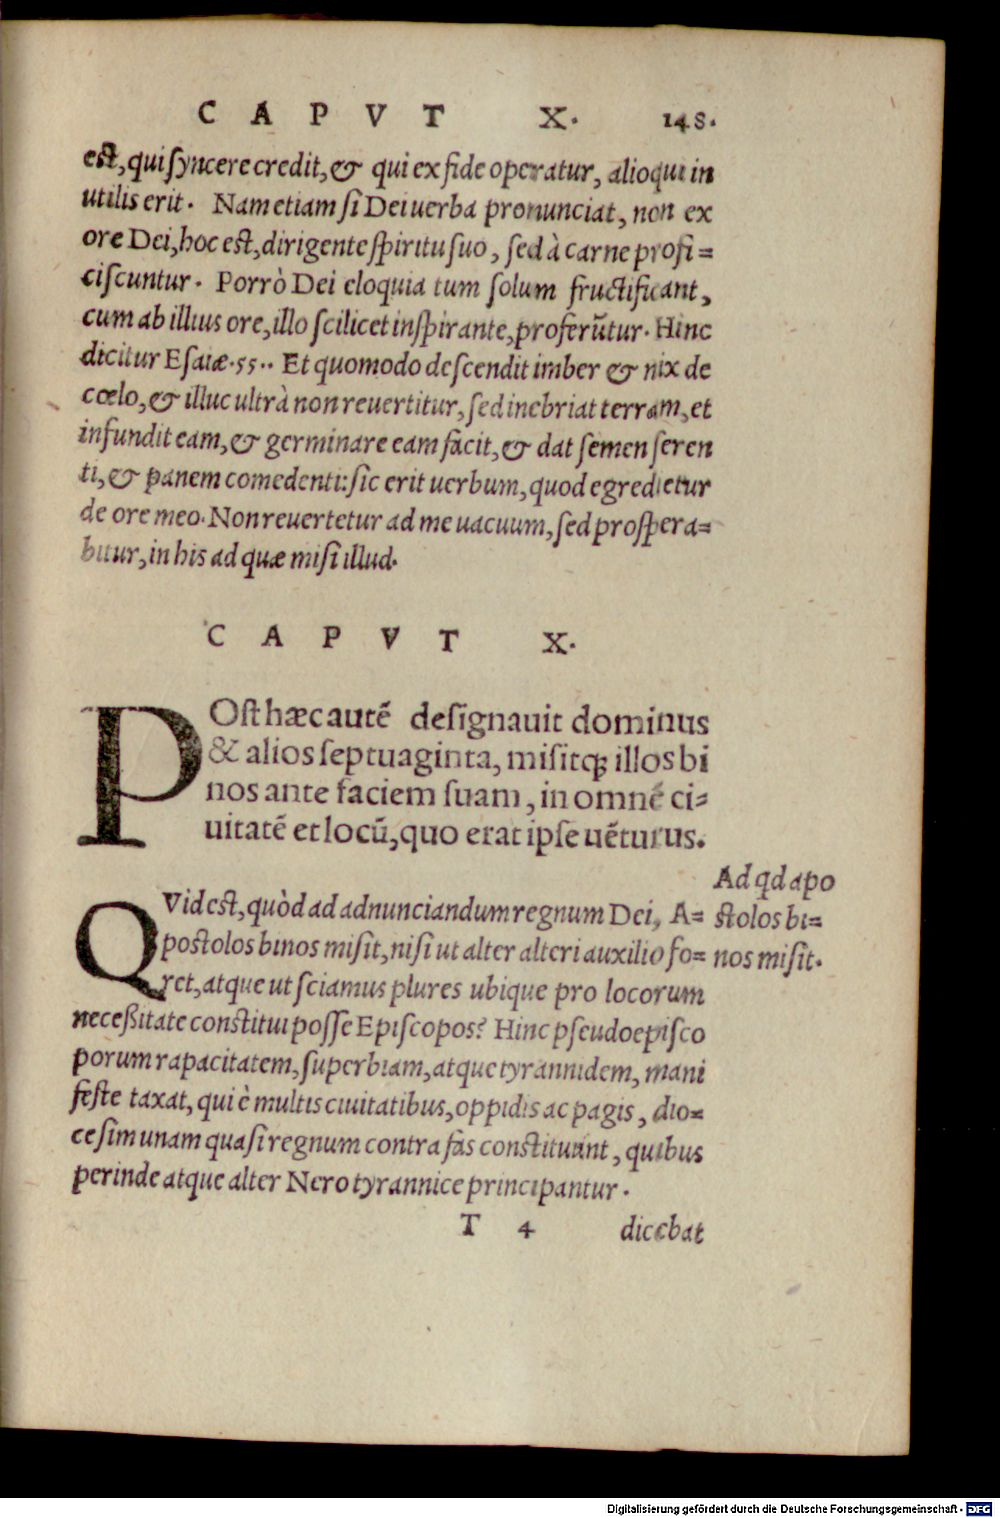 CAPVT X. 148.
est, qui syncere credit, & qui ex fide operatur, alioqui in
utilis erit. Nam etiam si Dei uerba pronunciat, non ex
ore Dei, hoc est, dirigente spiritu suo, sed à carne profi=
ciscuntur. Porrò Dei eloquia tum solum fructificant,
cum ab illius ore, illo scilicet inspirante, proferūtur. Hinc
dicitur Esaiæ.55.. Et quomodo descendit imber & nix de
cœlo, & illuc ultrà non reuertitur, sed inebriat terram, et
infundit eam, & germinare eam facit, & dat semen seren
ti, & panem comedenti: sic erit uerbum, quod egredietur
de ore meo. Non reuertetur ad me uacuum, sed prospera=
bitur, in his ad quæ misi illud.
CAPVT X.
POst hæc autē designauit dominus
& alios septuaginta, misitq́; illos bi
nos ante faciem suam, in omnē ci=
uitatē et locū, quo erat ipse uēturus.
Ad qd apo
stolos bi=
nos misit.
QVid est, quòd ad adnunciandum regnum Dei, A=
postolos binos misit, nisi ut alter alteri auxilio fo=
ret, atque ut sciamus plures ubique pro locorum
neceßitate constitui posse Episcopos? Hinc pseudoepisco
porum rapacitatem, superbiam, atque tyrannidem, mani
feste taxat, qui è multis ciuitatibus, oppidis ac pagis, dio=
cesim unam quasi regnum contra fas constituunt, quibus
perinde atque alter Nero tyrannice principantur.
T 4 dicebat
Digitalisierung gefördert durch die Deutsche Forschungsgemeinschaft - DFG